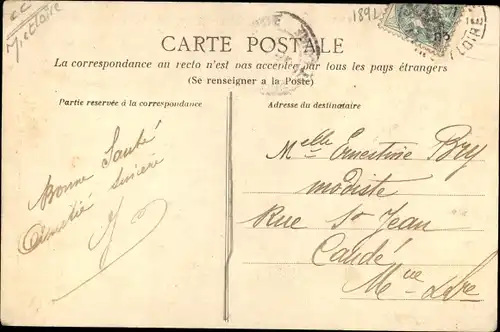 cc
M et Loire
1891
CARTE POSTALE
La correspondance au recto n'est pas acceptée par tous les pays étrangers
(Se renseigner a la Poste)
Partie reservée à la correspondance
Adresse du destinataire
Bonne Santé
Amitié sincère
Melle Ernestine Bry
modiste
Rue St Jean
Candé
Mne Lre